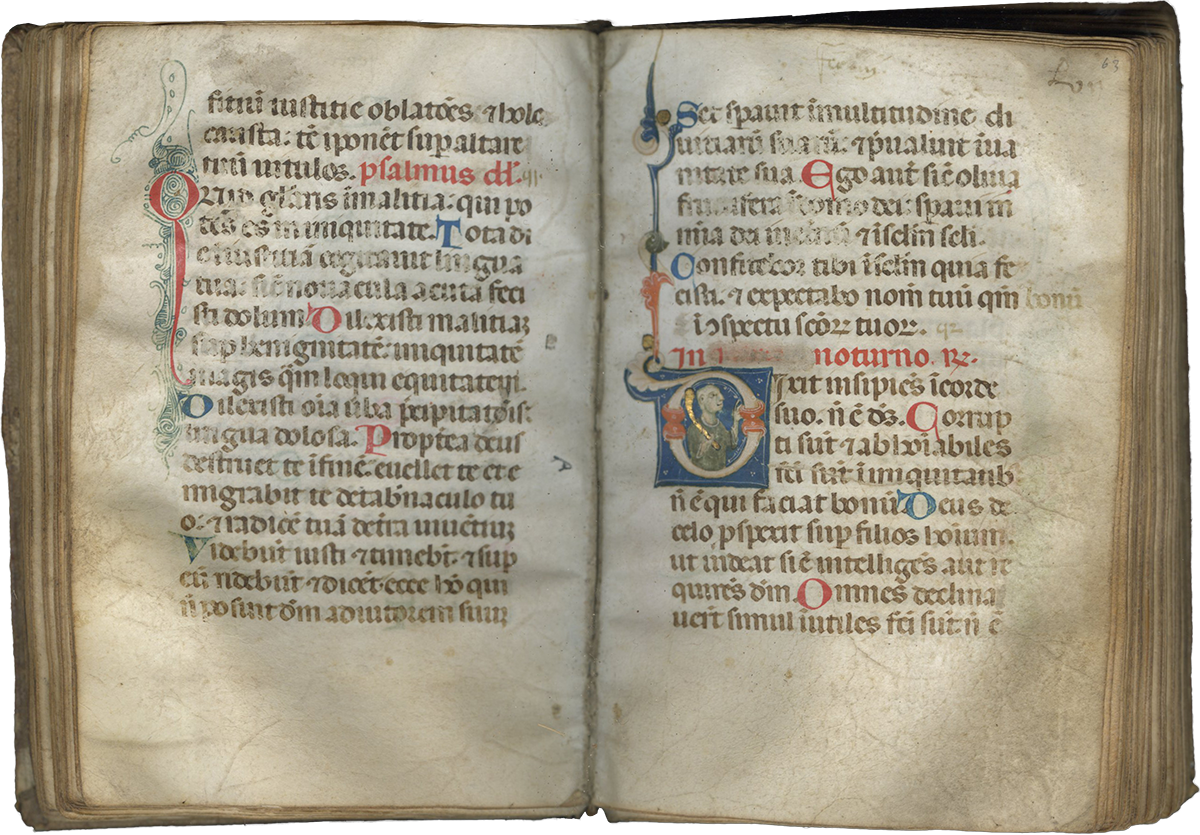 ficiū iustitie oblatōes ⁊ holo
causta: tē īponēt sup altare
tuū uitulos. psalmus dd.
Quid gl̄aris ī malitia: qui po
tēs es in iniquitate. Tota di
e iniustitiā cogitauit lingua
tua: sic̄ nouacula acutā feci
sti dolum Dilexisti malitiaꝫ
sup benignitatē: iniquitatē
magis qm̄ loqui equitatem.
Dilexisti oīa uerba p̄cipitatōis:
lingua dolosa. Propt̄ea deus
destruet te ī finē: euellet te et e
migrabit te de tab̄naculo tu
o: ⁊ radicē tuā de t̄ra uiuētiuꝫ
Videbūt iusti ⁊ timebūt: ⁊ sup
eū ridebūt ⁊ dicēt: ecce hō qui
n̄ posuit dm̄ adiutorem suuꝫ
63
Set spauit ī multitudine di
uitiarū suaꝝ: ⁊ p̄ualuit ī ua
nitate sua. Ego aut̄ sic̄ oliua
fructifera ī domo dei: spaui in
mīa dei ⁊ ī sclm̄ scli.
Confitebor tibi ī sclm̄ quia fe
cisti: ⁊ expectabo nom̄ tuū qm̄ bonū
ē ī ɔspectu scōꝝ tuoꝝ.
In noturno. ꝶ.
Dixit insipiēs ī corde
suo. n̄ ē dꝫ. Corrup
ti sūt ⁊ abhoīabiles
fc̄i sūt ī iniquitatib
n̄ ē qui faciat bonū Deus de
celo pspexit sup filios hoīum.
ut uideat si ē intelligēs aut re
quirēs dm̄. Omnes declina
uerūt simul īutiles fc̄i sūt: n̄ ē